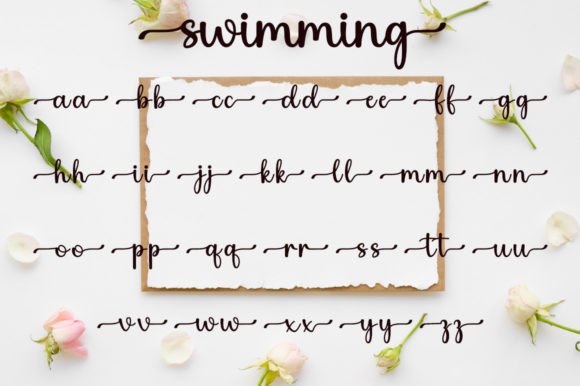 swimming
aa bb cc dd ee ff gg
hh ii jj kk ll mm nn
oo pp qq rr ss tt uu
vv ww xx yy zz